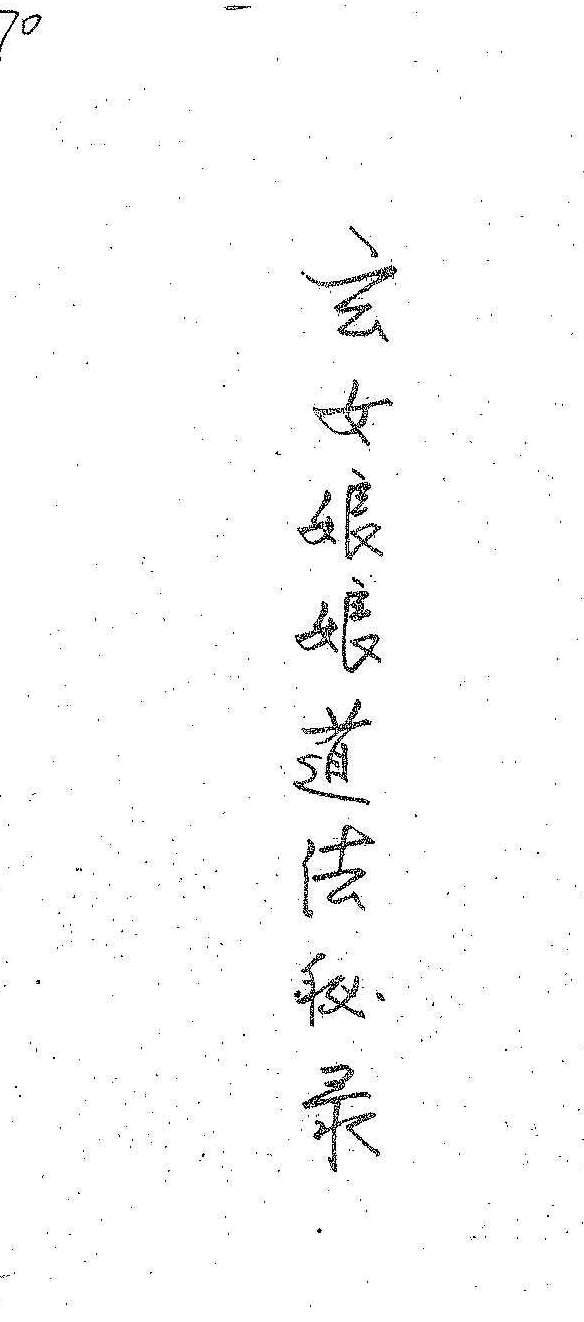 70
玄女娘娘道法秘录